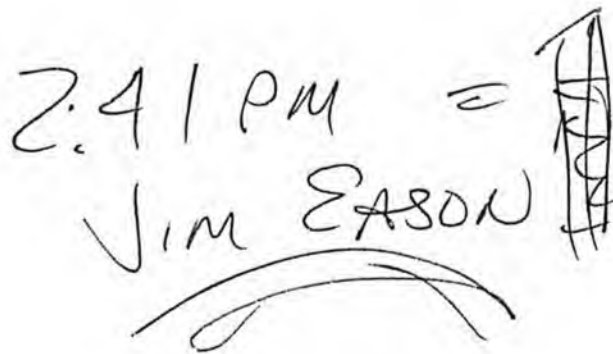 2:41 PM =
JIM EASON